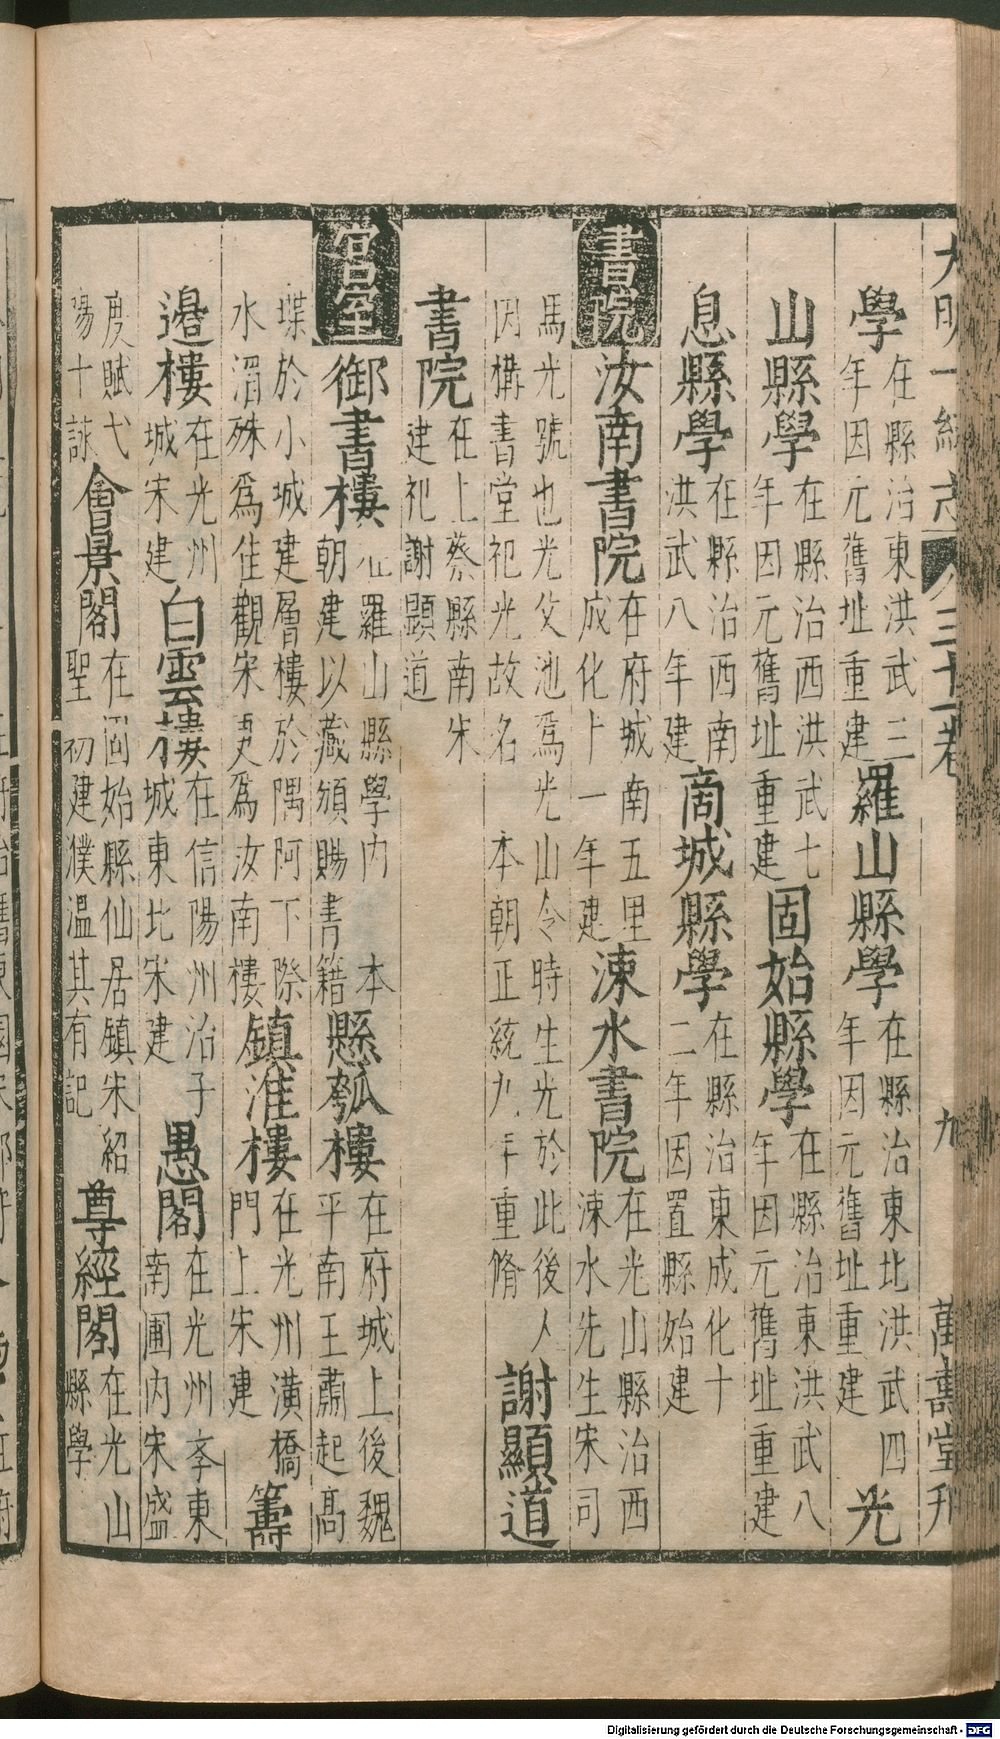 大明一統志 卷三十一卷 九 萬壽堂刋
學在縣治東洪武三年因元舊址重建羅山縣學在縣治東北洪武四年因元舊址重建光
山縣學在縣治西洪武七年因元舊址重建固始縣學在縣治東洪武八年因元舊址重建
息縣學在縣治西南洪武八年建商城縣學在縣治東成化十二年因置縣始建
書院汝南書院在府城南五里成化十一年建涑水書院在光山縣治西涑水先生宋司
馬光號也光父池爲光山令時生光於此後人因構書堂祀光故名本朝正統九年重脩謝顯道
書院在上蔡縣南朱建祀謝顯道
宮室御書樓在羅山縣學內本朝建以藏頒賜書籍懸瓠樓在府城上後魏平南王肅起高
堞於小城建層樓於隅阿下際水湄殊爲佳觀宋更爲汝南樓鎮淮樓在光州潢橋門上宋建籌
邉樓在光州城宋建白雲樓在信陽州治子城東北宋建愚閣在光州李東南圃內宋盛
度賦弋陽十詠會景閣在固始縣仙居鎮宋紹聖初建濮溫其有記尊經閣在光山縣學
Digitalisierung gefördert durch die Deutsche Forschungsgemeinschaft - DFG